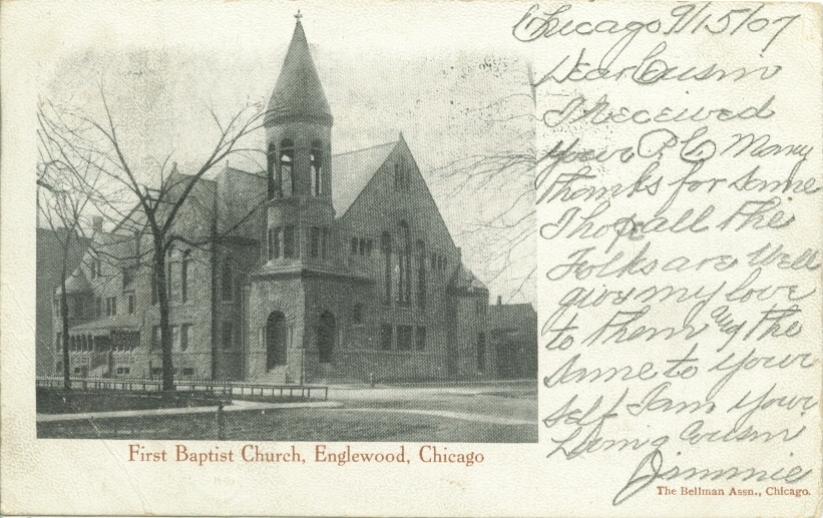 Chicago 9/15/07
Dear Cusin
I Received
your P.C Many
Thanks for Same
I hop all The
Folks are Well
give my love
to Them and The
Same to your
self I am your
Loving Cousin
Jimmie
First Baptist Church, Englewood, Chicago
The Bellman Assn., Chicago.